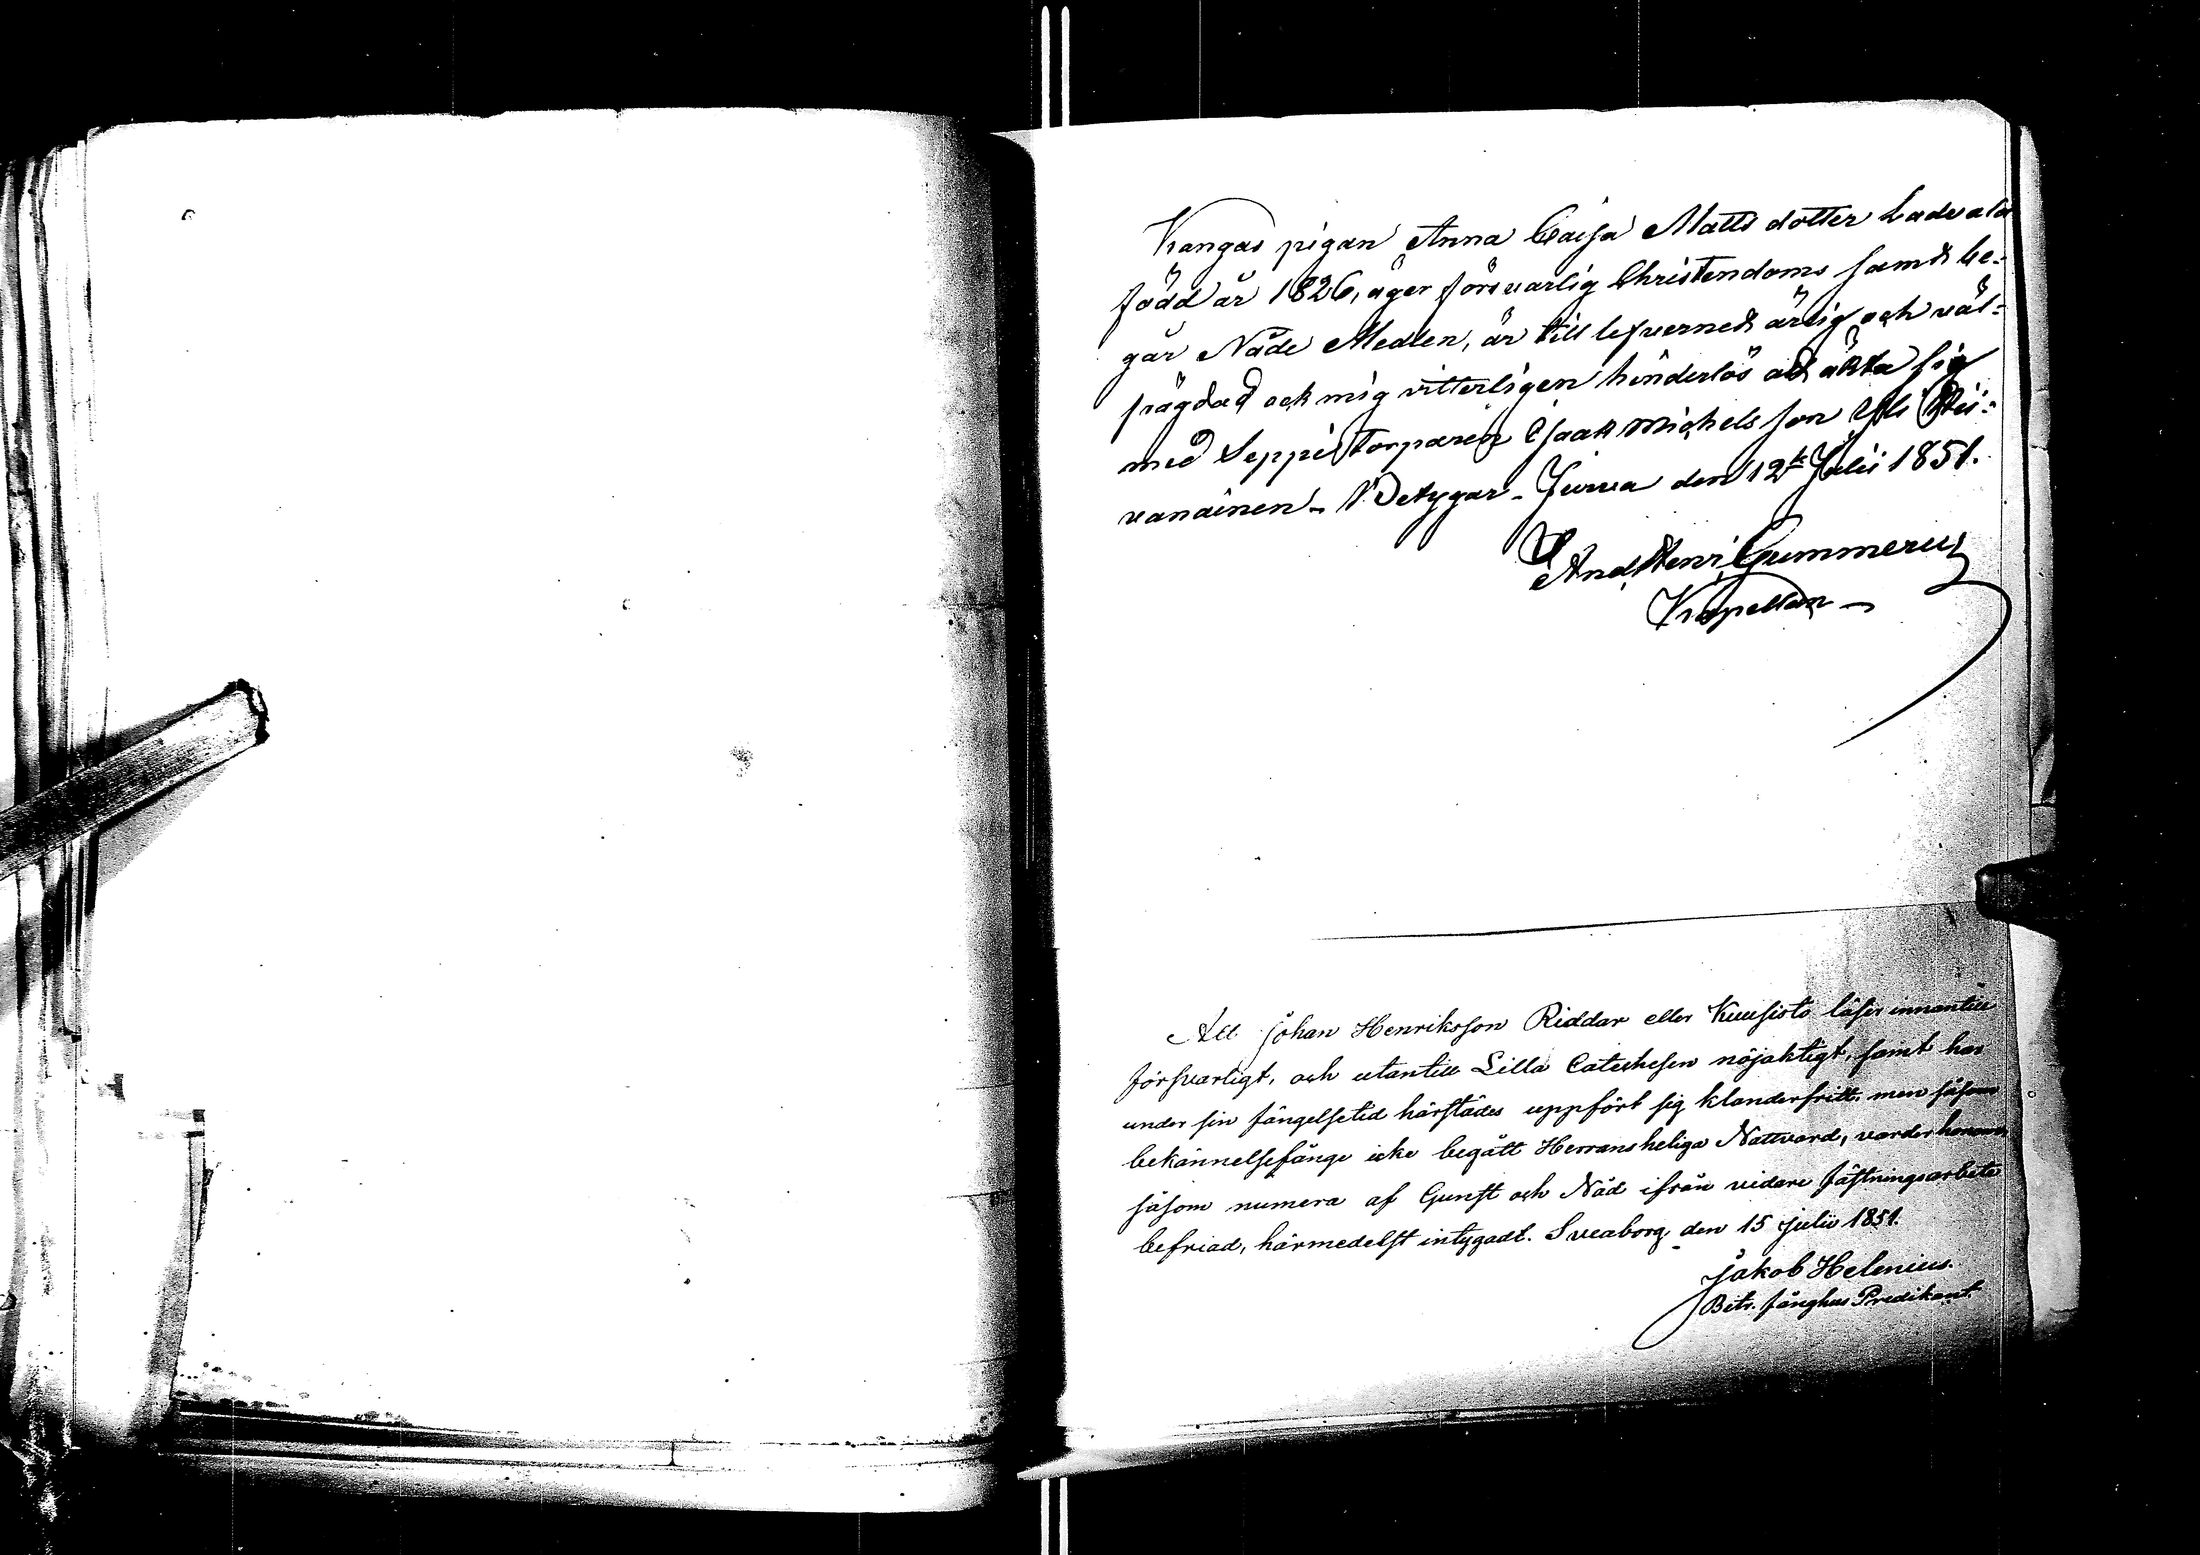 Kangas pigan Anna Caisa Matts dotter Ladvala
född år 1826, äger försvarlig Christendoms samt be-
går Nåde Medlen, är till lefvernet ärlig och väl-
frägdad och mig vitterligen hinderlös att äkta sig
med Seppi Torparen Isaak Michels son Yli
vanainen - Betygar - Jurva den 12te Julii 1851.
And. Henr. Gummerus
Kapellan -
Att Johan Henriksson Riddar eller Kuusisto läser innantill
försvarligt, och utantill Lilla Catechesen nöjaktigt, samt har
under sin fängelsetid härstädes uppfört sig klanderfritt, men såsom
bekännelsefånge icke begått Herrans heliga Nattvard, varder honom
såsom numera af Gunst och Nåd ifrån vidare fästningsarbete
befriad, härmedelst intygadt. Sveaborg den 15 Julii 1851.
Jakob Helenius.
Bitr. Fånghus Predikant.